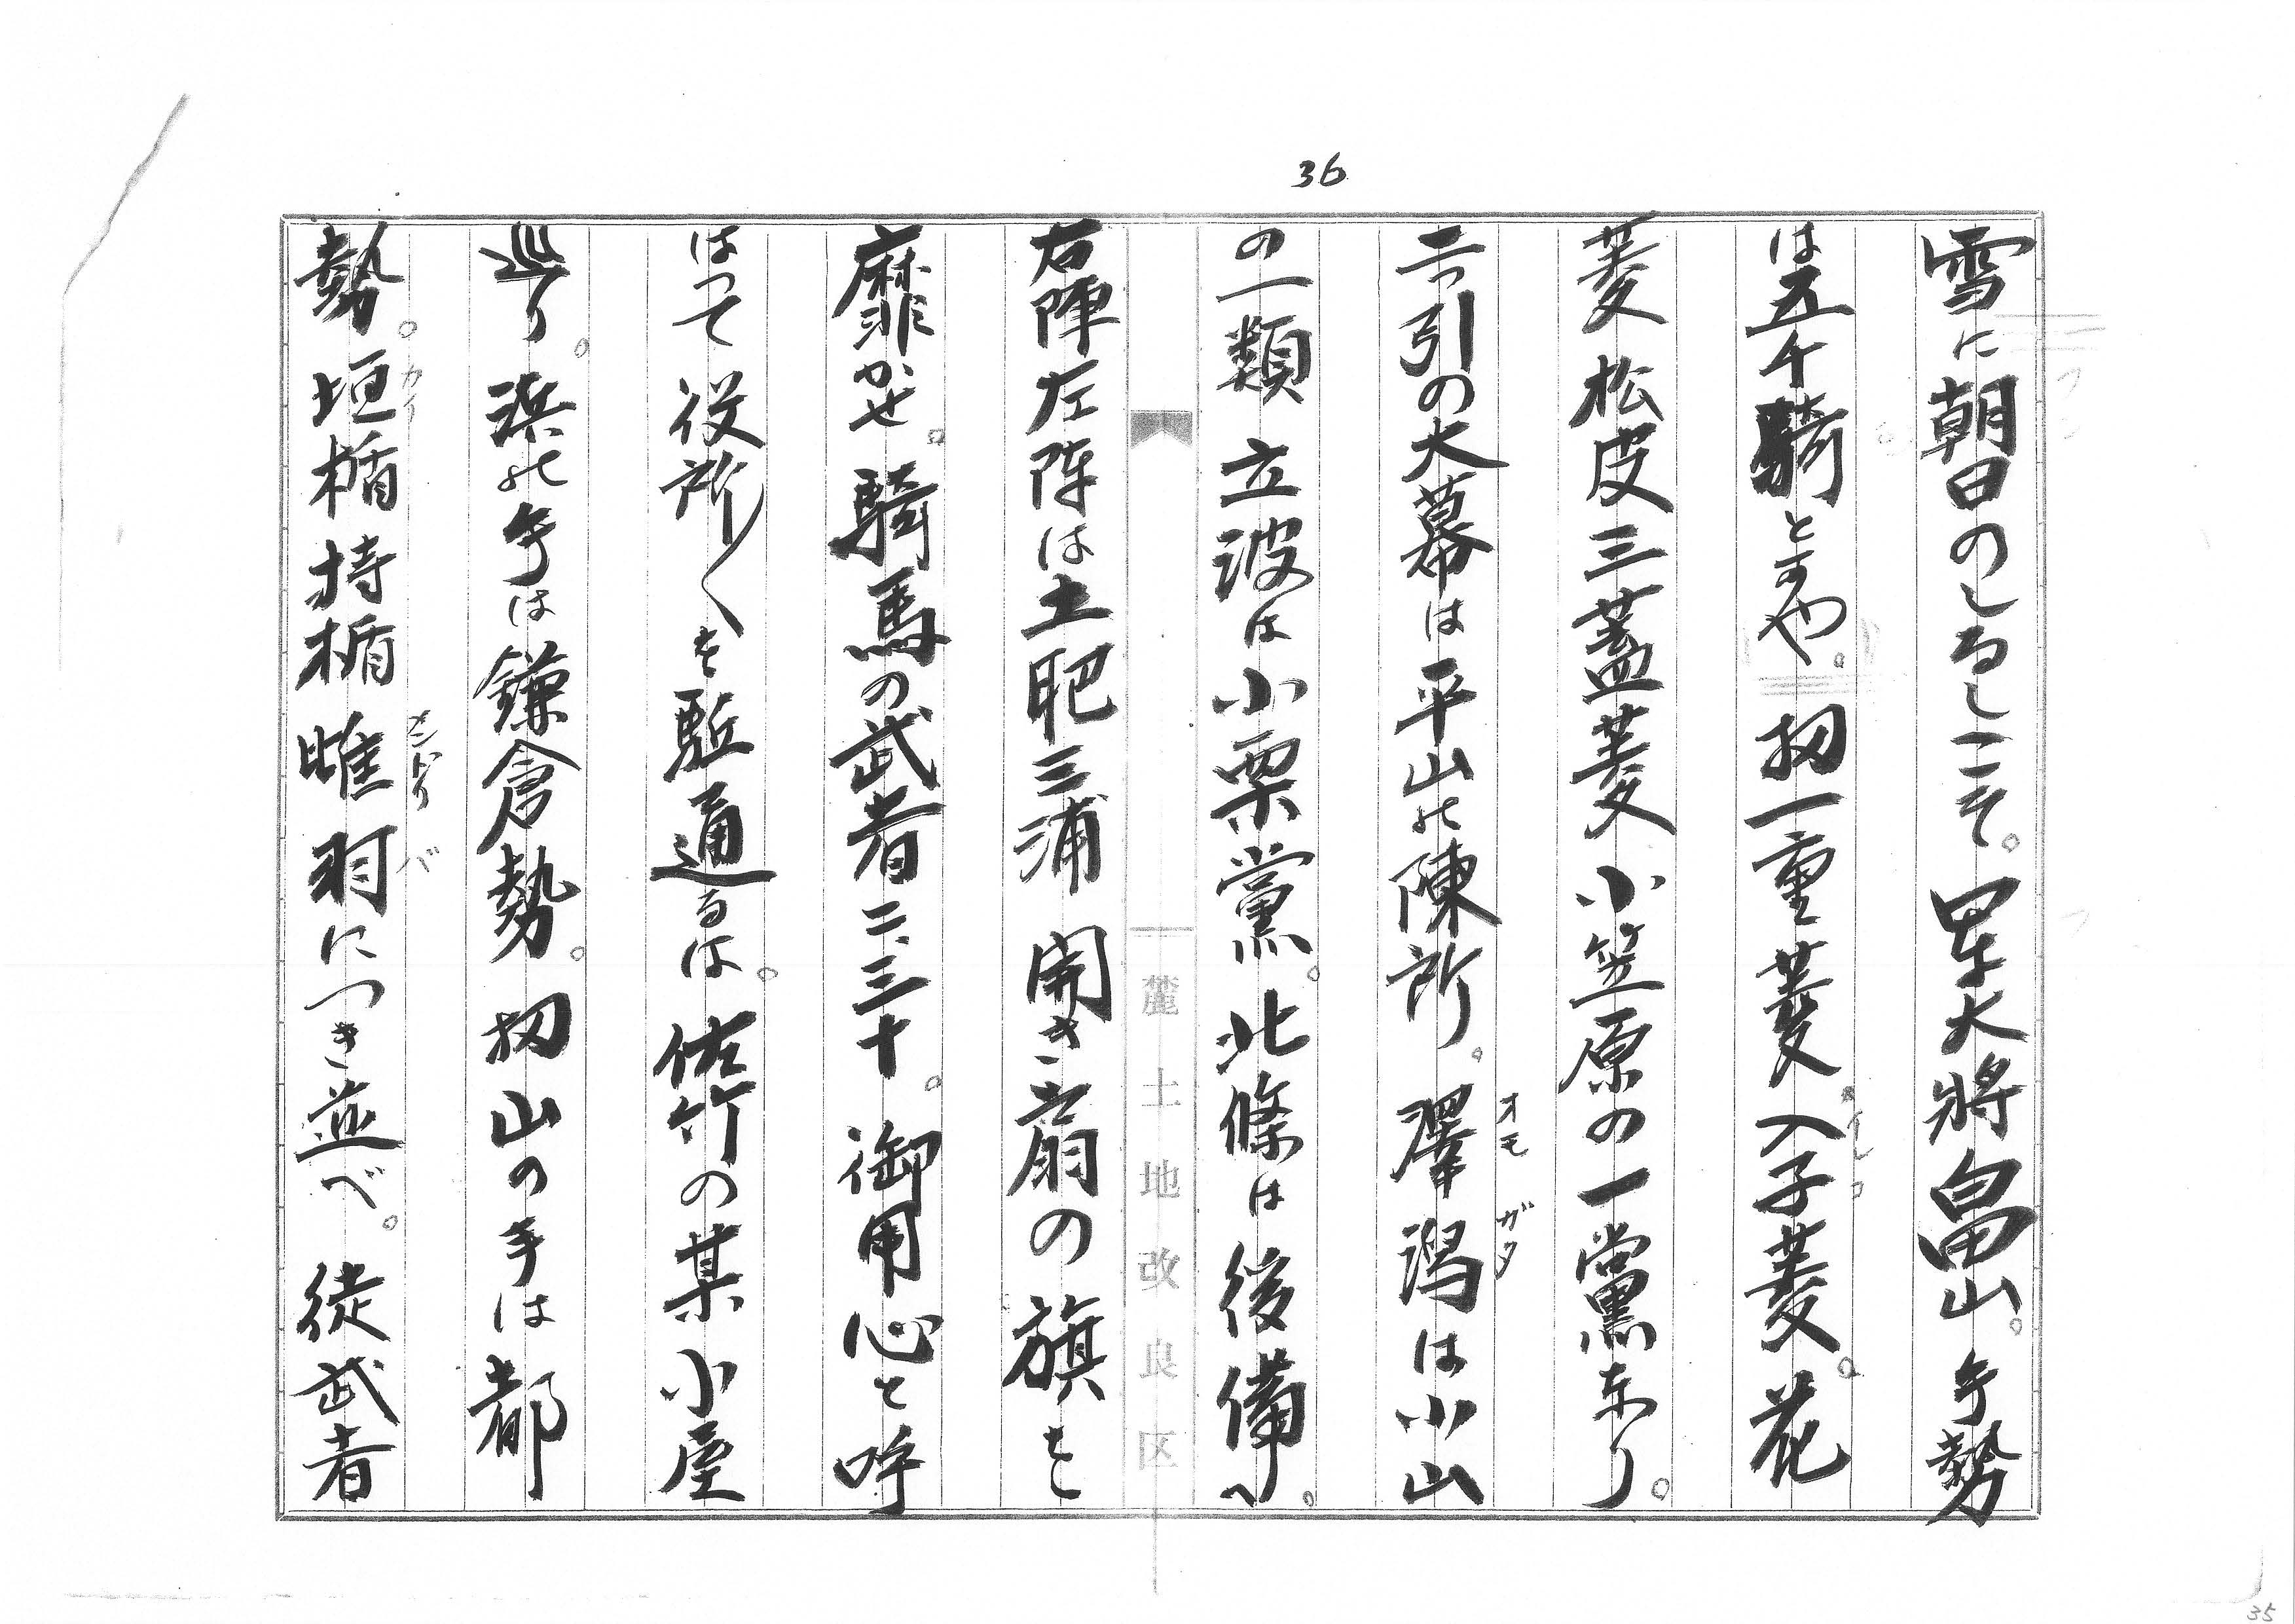 36
雪に朝日のしるしこそ。軍大將畠山。手勢
は五千騎とすや。扨一重菱入子菱。花
菱松皮三蓋菱小笠原の一黨なり。
二引の大幕は平山の陳所。澤潟は小山
オモガタ
の一類立波は小栗黨。北條は後備へ。
右陣左陣は土肥三浦開き扇の旗を
靡かせ。騎馬の武者二、三十。御用心と呼
はつて役所〱を駈通るは。佐竹の某小屋
巡り。浜の手は鎌倉勢。扨山の手は都
勢。垣楯持楯雌羽につき並べ。徒武者
カイ
メンドリ
バ
麓土地改良区
35